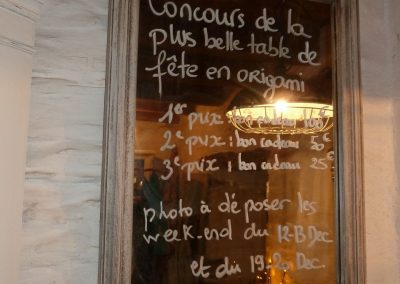 Concours de la
plus belle table de
fête en origami
1er prix : bon cadeau 100€
2e prix : bon cadeau 50€
3e prix : bon cadeau 25€
photo à déposer les
week-end du 12-13 Dec
et du 19-20 Dec.